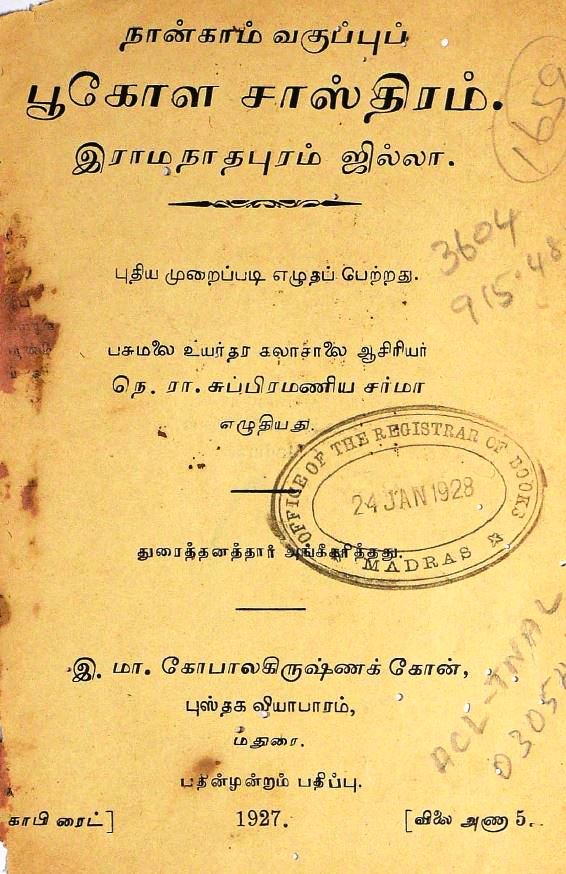 நான்காம் வகுப்புப்
பூகோள சாஸ்திரம்.
இராமநாதபுரம் ஜில்லா.
1659
3604
915.48
புதிய முறைப்படி எழுதப் பெற்றது.
பசுமலை உயர்தர கலாசாலை ஆசிரியர்
நெ. ரா. சுப்பிரமணிய சர்மா
எழுதியது.
OFFICE OF THE REGISTRAR OF BOOKS
24 JAN 1928
MADRAS
துரைத்தனத்தார் அங்கீகரித்தது.
இ. மா. கோபாலகிருஷ்ணக் கோன்,
புஸ்தக வியாபாரம்,
மதுரை.
பதின்மூன்றாம் பதிப்பு.
காபி ரைட்]
1927.
[விலை அணா 5.
ACL-TNAL